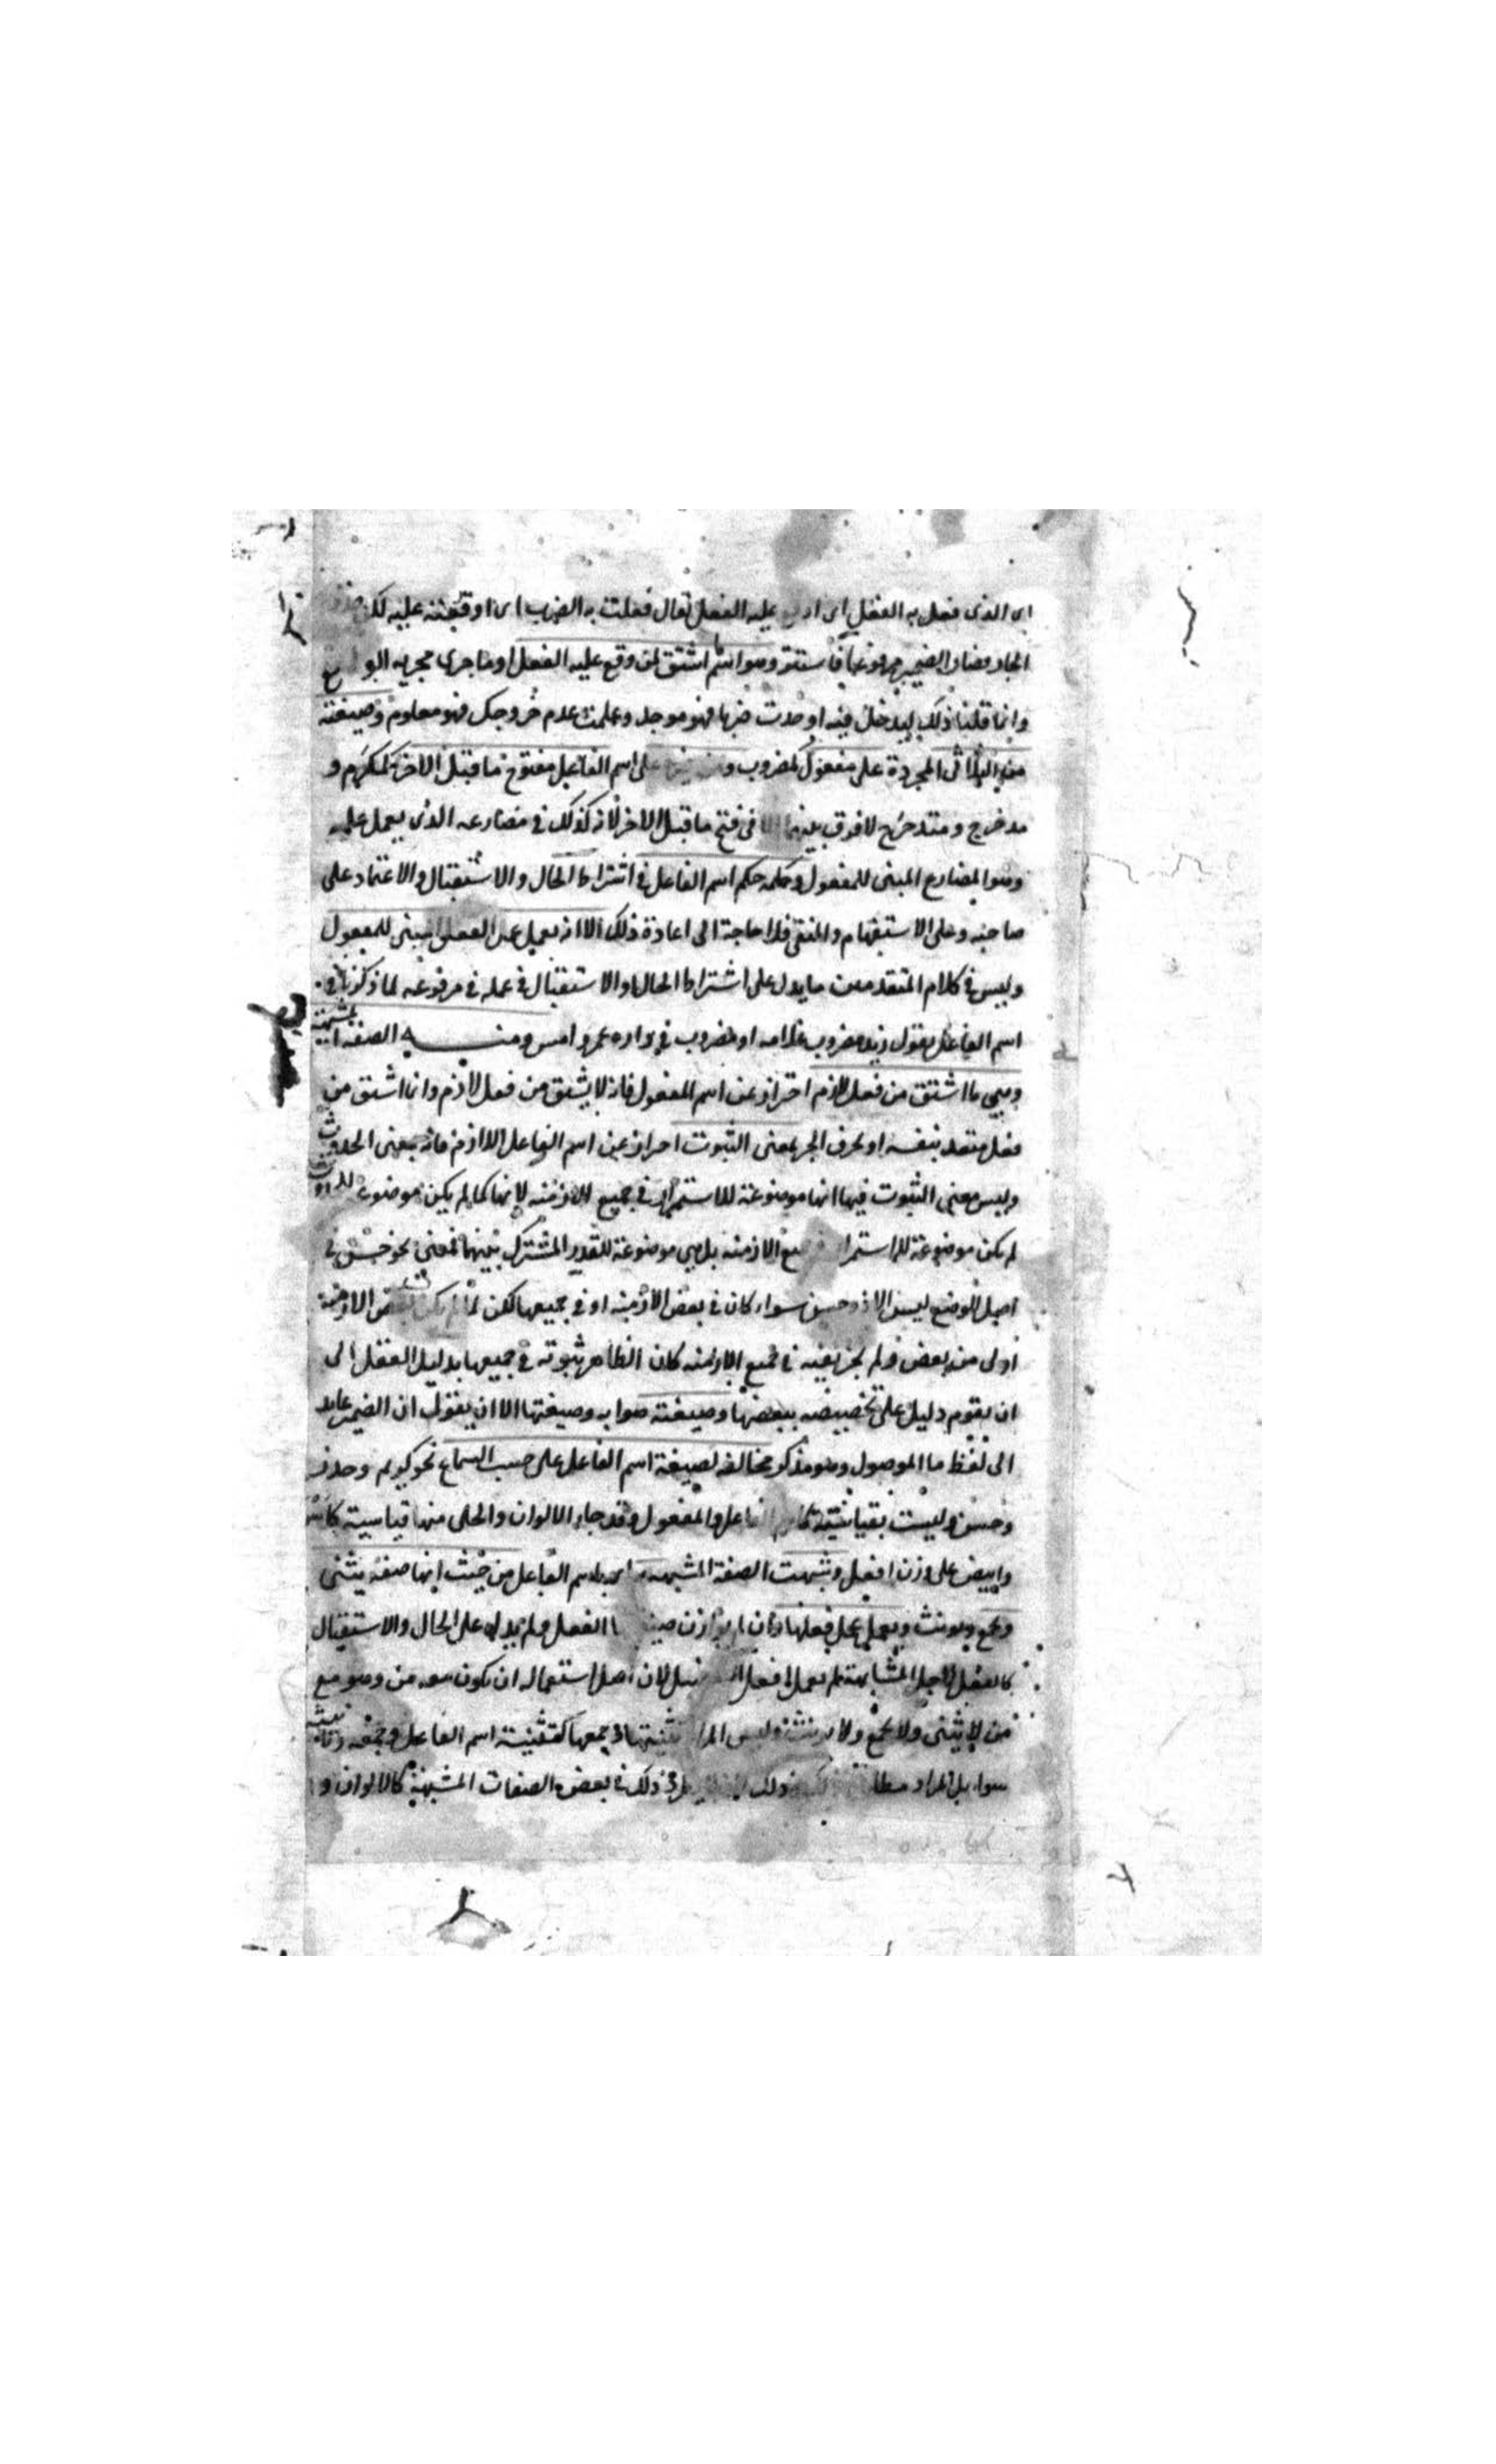 اى الذى فعل به الفعل اى عليه الفعل يقال فعلت به الضرب اى اوقعته عليه لكن حذف
الجار فصار الضمير مرفوعا فاستتر وهو اسم اشتق لمن وقع عليه الفعل او ما جرى مجريه
وانما قلنا ذلك ليدخل فيه اوجدت ضربا فهو موجد وعلمت عدم خروجك فهو معلوم وصيغته
من الثلاثى المجردة على مفعول كمضروب ومن على اسم الفاعل مفتوح ما قبل الاخر كمكرم و
مدخرج ومتدحرج لا فرق بينهما الا فى فتح ما قبل الاخر لانه كذلك فى مضارعه الذى يعمل عليه
وهو المضارع المبنى للمفعول وحكمه حكم اسم الفاعل فى اشتراط الحال والاستقبال والاعتماد على
صاحبه وعلى الاستفهام والنفى فلا حاجة الى اعادة ذلك الا انه يعمل عمل الفعل المبنى للمفعول
وليس فى كلام المتقدمين ما يدل على اشتراط الحال او الاستقبال فى عمله فى مرفوعه لما ذكرنا فى
اسم الفاعل يقول زيد مضروب غلامه او مضروب فى داره عمرو امس ومنه الصفة المشبهة
وهى ما اشتق من فعل لازم احتراز عن اسم المفعول فانه لا يشتق من فعل لازم وانما اشتق من
فعل متعد بنفسه او بحرف الجر بمعنى الثبوت احتراز عن اسم الفاعل اللازم فانه بمعنى الحدوث
وليس معنى الثبوت فيها انها موضوعة للاستمرار فى جميع الازمنة لانها كما لم يكن موضوعة للحدوث
لم يكن موضوعة للاستمرار جميع الازمنة بل هى موضوعة للقدر المشترك بينهما فمعنى نحو حسن فى
اصل الوضع ليس الا ذو حسن سواء كان فى بعض الازمنة او فى جميعها لكن لما لم يكن بعض الازمنة
اولى من بعض ولم يجز نفيه فى جميع الازمنة كان الظاهر ثبوته فى جميعها بدليل العقل الى
ان يقوم دليل على تخصيصه ببعضها وصيغته صوابه وصيغتها الا ان يقول ان الضمير عايد
الى لفظ ما الموصول وهو مذكر مخالفة لصيغة اسم الفاعل على حسب السماع نحو كريم وحذر
وحسن وليست بقياسية الفاعل والمفعول وقد جاء الالوان والحلى منها قياسية كاسود
وابيض على وزن افعل وشبهت الصفة المشبهة باسم الفاعل من حيث انها صفة يثنى
ويجمع ويونث ويعمل عمل فعلها وان لم يوازن الفعل ولم يدل على الحال والاستقبال
كالفعل لاجل المشابهة لم يعمل افعل لان اصل استعماله ان يكون معه من وهو مع
من لا يثنى ولا يجمع ولا يونث وليس المراد تثنيتها وجمعها كتثنية اسم الفاعل وجمعه وتانيثه
سواء بل المراد ذلك ذلك فى بعض الصفات المشبهة كالالوان و